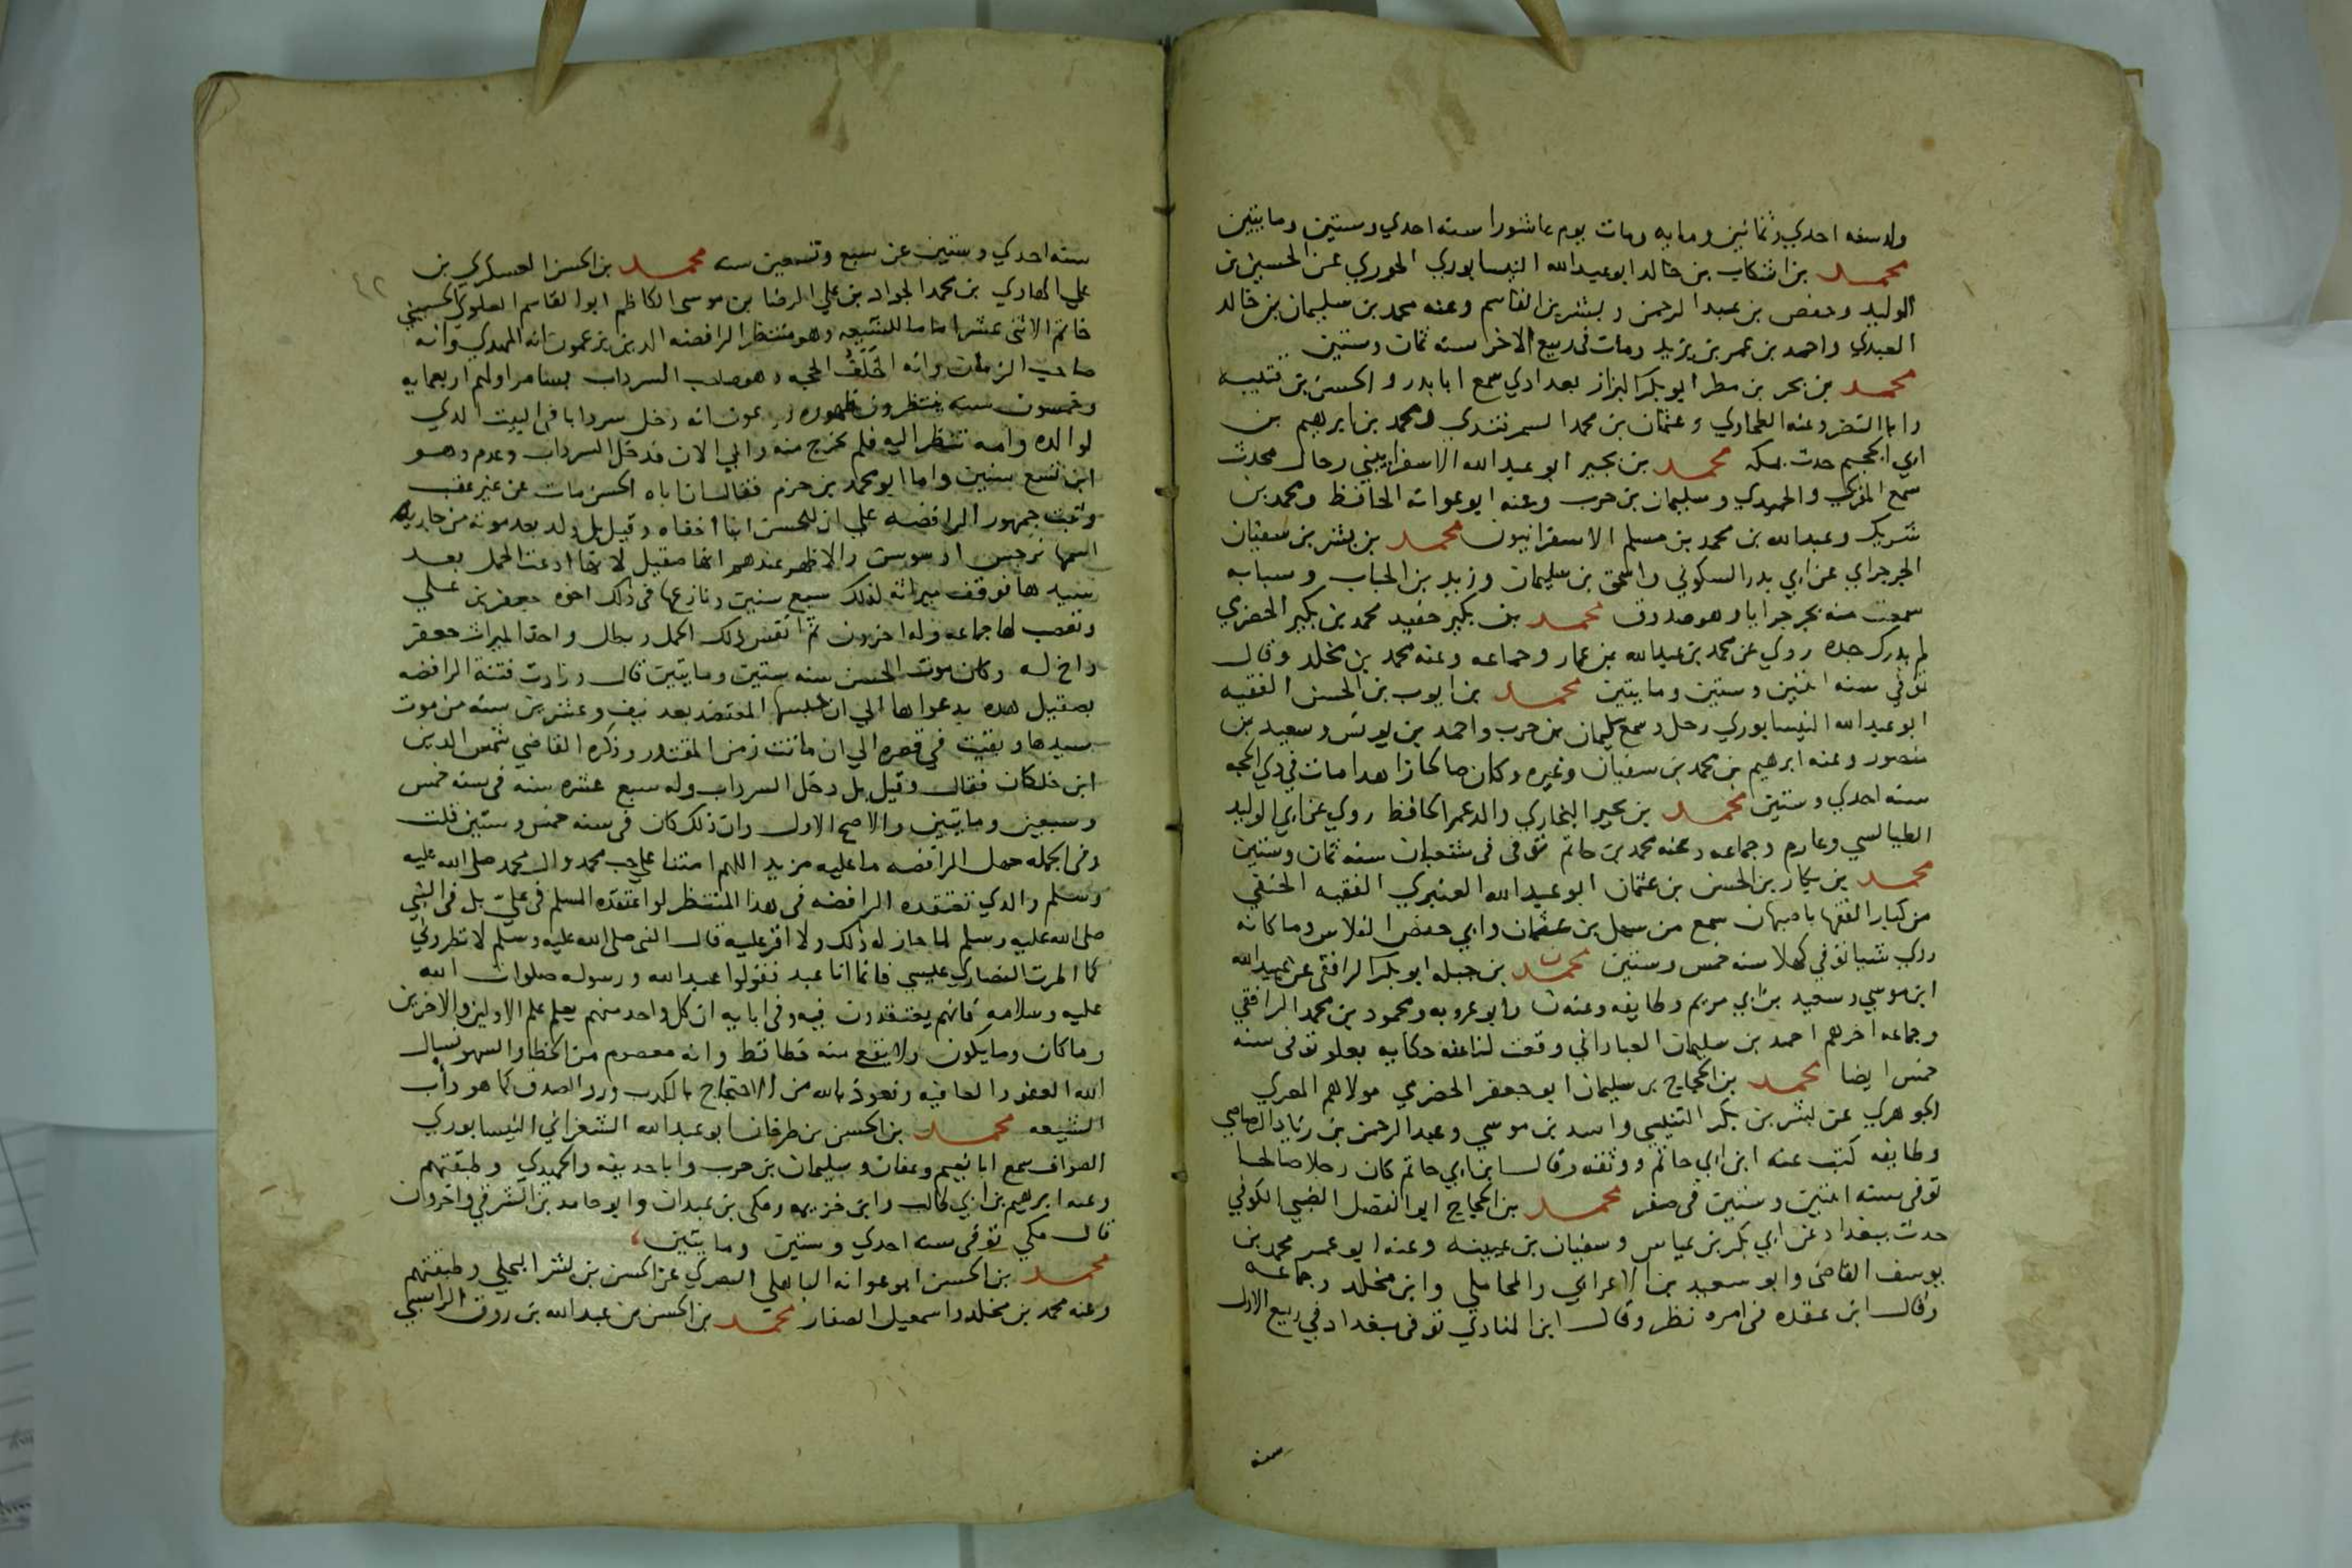 ولد سنه احدي وثمانين ومايه ومات يوم عاشورا سنه احدي وستين ومايتين
محمد بن اشكاب بن خالد ابو عبدالله النيسابوري الخوري عن الحسين بن
الوليد وحفص بن عبد الرحمن وبشر بن القاسم وعنه محمد بن سليمان بن خالد
العبدي واحمد بن عمر بن يزيد ومات في ربيع الاخر سنه ثمان وستين
محمد بن بحر بن مطر ابو بكر البزاز بغدادي سمع ابا بدر والحسن بن قتيبه
وابا النضر وعنه الطحاوي وعثمان بن محمد السمرقندي ومحمد بن ابرهيم بن
ابي الحجيم حدث بمكه محمد بن بجير ابو عبدالله الاسفراييني رحال محدث
سمع المقري والحميدي وسليمان بن حرب وعنه ابو عوانه الحافظ ومحمد بن
شريك وعبدالله بن محمد بن مسلم الاسفرانيون محمد بن بشر بن سفيان
الجرجراي عن ابي بدر السكوني واسحق بن سليمان وزيد بن الحباب وسبابه
سمعت منه بجرجرايا وهو صدوق محمد بن بكير حفيد محمد بن بكير الحضري
لم يدرك جده روي عن محمد بن عبدالله بن عمار وجماعه وعنه محمد بن مخلد وقال
توفي سنه اثنين وستين ومايتين محمد بن ايوب بن الحسن الفقيه
ابو عبدالله النيسابوري رحل وسمع سليمان بن حرب واحمد بن يونس وسعيد بن
منصور وعنه ابرهيم بن محمد بن سفيان وغيره وكان صالحا زاهدا مات في ذي الحجه
سنه احدي وستين محمد بن بجير البخاري والد عمر الحافظ روي عن ابي الوليد
الطيالسي وعارم وجماعه وعنه محمد بن حاتم توفي في شعبان سنه ثمان وستين
محمد بن بكار بن الحسن بن عثمان ابو عبدالله العنبري الفقيه الحنفي
من كبار الفقها باصبهان سمع من سهل بن عثمان وابي حفص الفلاس وما كانه
روي شيا توفي كهلا سنه خمس وستين محمد بن جبله ابو بكر الرافقي عن عبيدالله
ابن موسي وسعيد بن ابي مريم وطايفه وعنه ن وابو عروبه ومحمود بن محمد الرافقي
وجماعه اخرهم احمد بن سليمان العباداني وقعت لنا عنه حكايه بعلو توفي سنه
خمس ايضا محمد بن الحجاج بن سليمان ابو جعفر الحضرمي مولاهم المصري
الجوهري عن بشر بن بكر التنيسي واسد بن موسي وعبد الرحمن بن زياد الرصاصي
وطايفه كتب عنه ابن ابي حاتم ووثقه وقال ابن ابي حاتم كان رجلا صالحا
توفي سنه اثنين وستين في صفر محمد بن الحجاج ابو الفضل الضبي الكوفي
حدث ببغداد عن ابي بكر بن عياس وسفيان بن عيينه وعنه ابو عمر محمد بن
يوسف القاضي وابو سعيد بن الاعرابي والمحاملي وابن مخلد وجماعه
وقال ابن عقده في امره نظر وقال ابن المنادي توفي ببغداد في ربيع الاول
سنه
٤٢
سنه احدي وستين عن سبع وتسعين سنه محمد بن الحسن العسكري بن
علي الهادي بن محمد الجواد بن علي الرضا بن موسي الكاظم ابو القاسم العلوي الحسيني
خاتم الاثني عشر اماما للشيعه وهو منتظر الرافضه الدين يزعمون انه المهدي وانه
صاحب الزمان وانه الخَلَفُ الحجه وهو صاحب السرداب بسامرا ولهم اربعمايه
وخمسون سنه ينتظرون ظهوره ويزعمون انه دخل سردابا في البيت الدي
لوالده وامه تنظر اليه فلم يخرج منه والي الان فدخل السرداب وعدم وهو
ابن تسع سنين واما ابو محمد بن حزم فقال ان اباه الحسن مات عن غير عقب
وثبت جمهور الرافضه علي ان للحسن ابنا اخفاه وقيل بل ولد بعد موته من جاريه
اسمها نرجس او سوسن والاظهر عندهم انها صقيل لانها ادعت الحمل بعد
سيدها فوقف ميراثه لذلك سبع سنين ونازعها في ذلك اخوه جعفر بن علي
وتعصب لها جماعه وله اخرون ثم انفس ذلك الحمل وبطل واخذ الميراث جعفر
واخ له وكان موت الحسن سنه ستين ومايتين قال وزادت فتنة الرافضه
بصقيل هده بدعواها الي ان حبسها المعتضد بعد نيف وعشرين سنه من موت
سيدها وبقيت في قصره الي ان ماتت زمن المقتدر وذكره القاضي شمس الدين
ابن خلكان فقال وقيل بل دخل السرداب وله سبع عشره سنه في سنه خمس
وسبعين ومايتين والاصح الاول وان ذلك كان في سنه خمس وستين قلت
وفي الجمله جهل الرافضه ما عليه مزيد اللهم امتنا علي حب محمد وال محمد صلى الله عليه
وسلم والدي تعتقده الرافضه في هذا المنتظر لو اعتقده المسلم في علي بل في النبي
صلى الله عليه وسلم لما جاز له ذلك ولا اقر عليه قال النبي صلى الله عليه وسلم لا تطروني
كما اطرت النصاري عيسي فانما انا عبد فقولوا عبدالله ورسوله صلوات الله
عليه وسلامه فانهم يعتقدون فيه وفي ابايه ان كل واحد منهم يعلم علم الاولين والاخرين
وما كان وما يكون ولا يقع منه خطا قط وانه معصوم من الخطا والسهو نسال
الله العفو والعافيه ونعوذ بالله من الاحتجاج بالكدب ورد الصدق كما هو دأب
الشيعه محمد بن الحسن بن طرخان ابو عبدالله الشعراني النيسابوري
الصواف سمع ابا نعيم وعفان وسليمان بن حرب وابا حديفه والحميدي وطبقتهم
وعنه ابرهيم بن ابي طالب وابن خزيمه ومكي بن عبدان وابو حامد بن الشرقي واخرون
قال مكي توفي سنه احدي وستين ومايتين
محمد بن الحسن ابو عوانه الباهلي البصري عن الحسن بن بشر البجلي وطبقتهم
وعنه محمد بن مخلد واسمعيل الصفار محمد بن الحسن بن عبدالله بن روق الراسبي